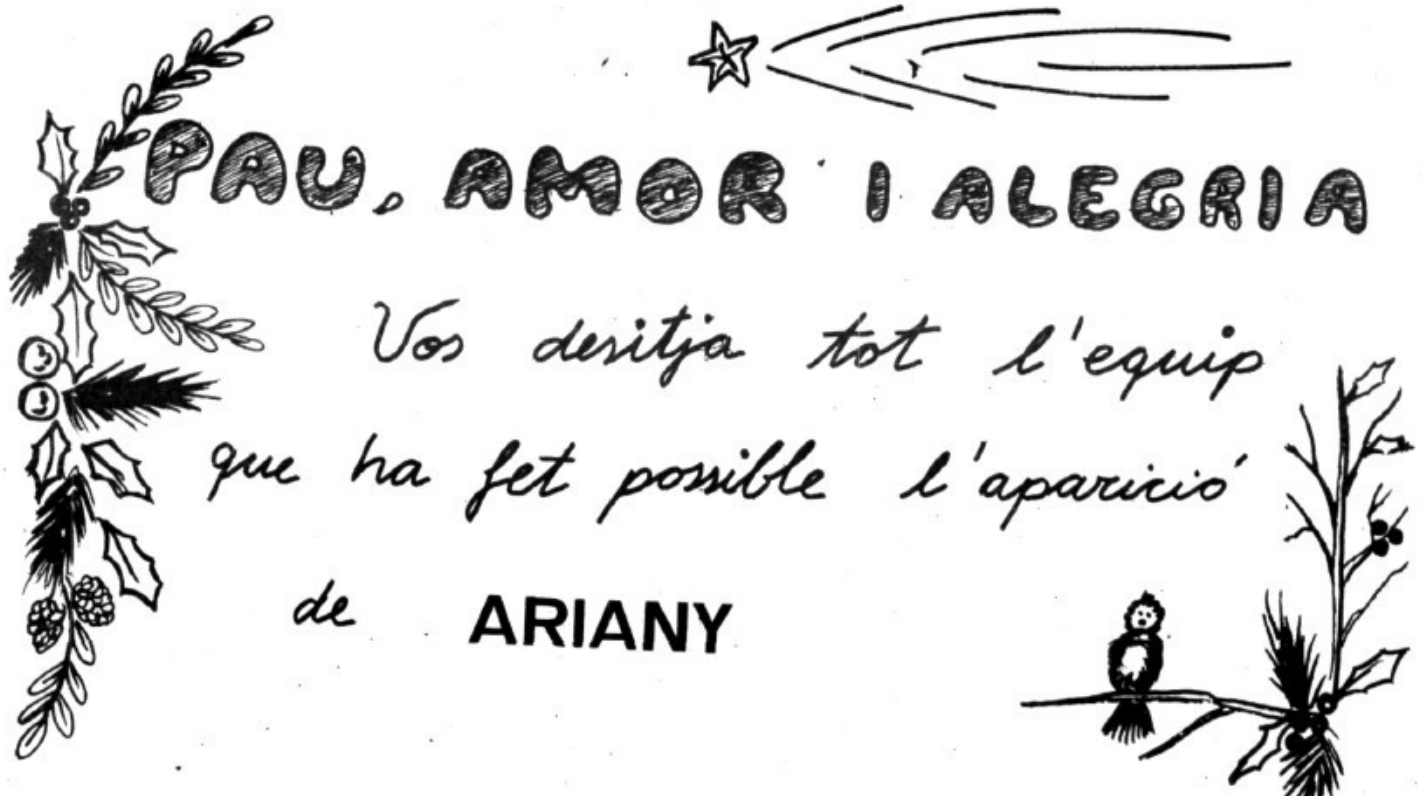 PAU, AMOR I ALEGRIA
Vos desitja tot l'equip
que ha fet possible l'aparició
de ARIANY